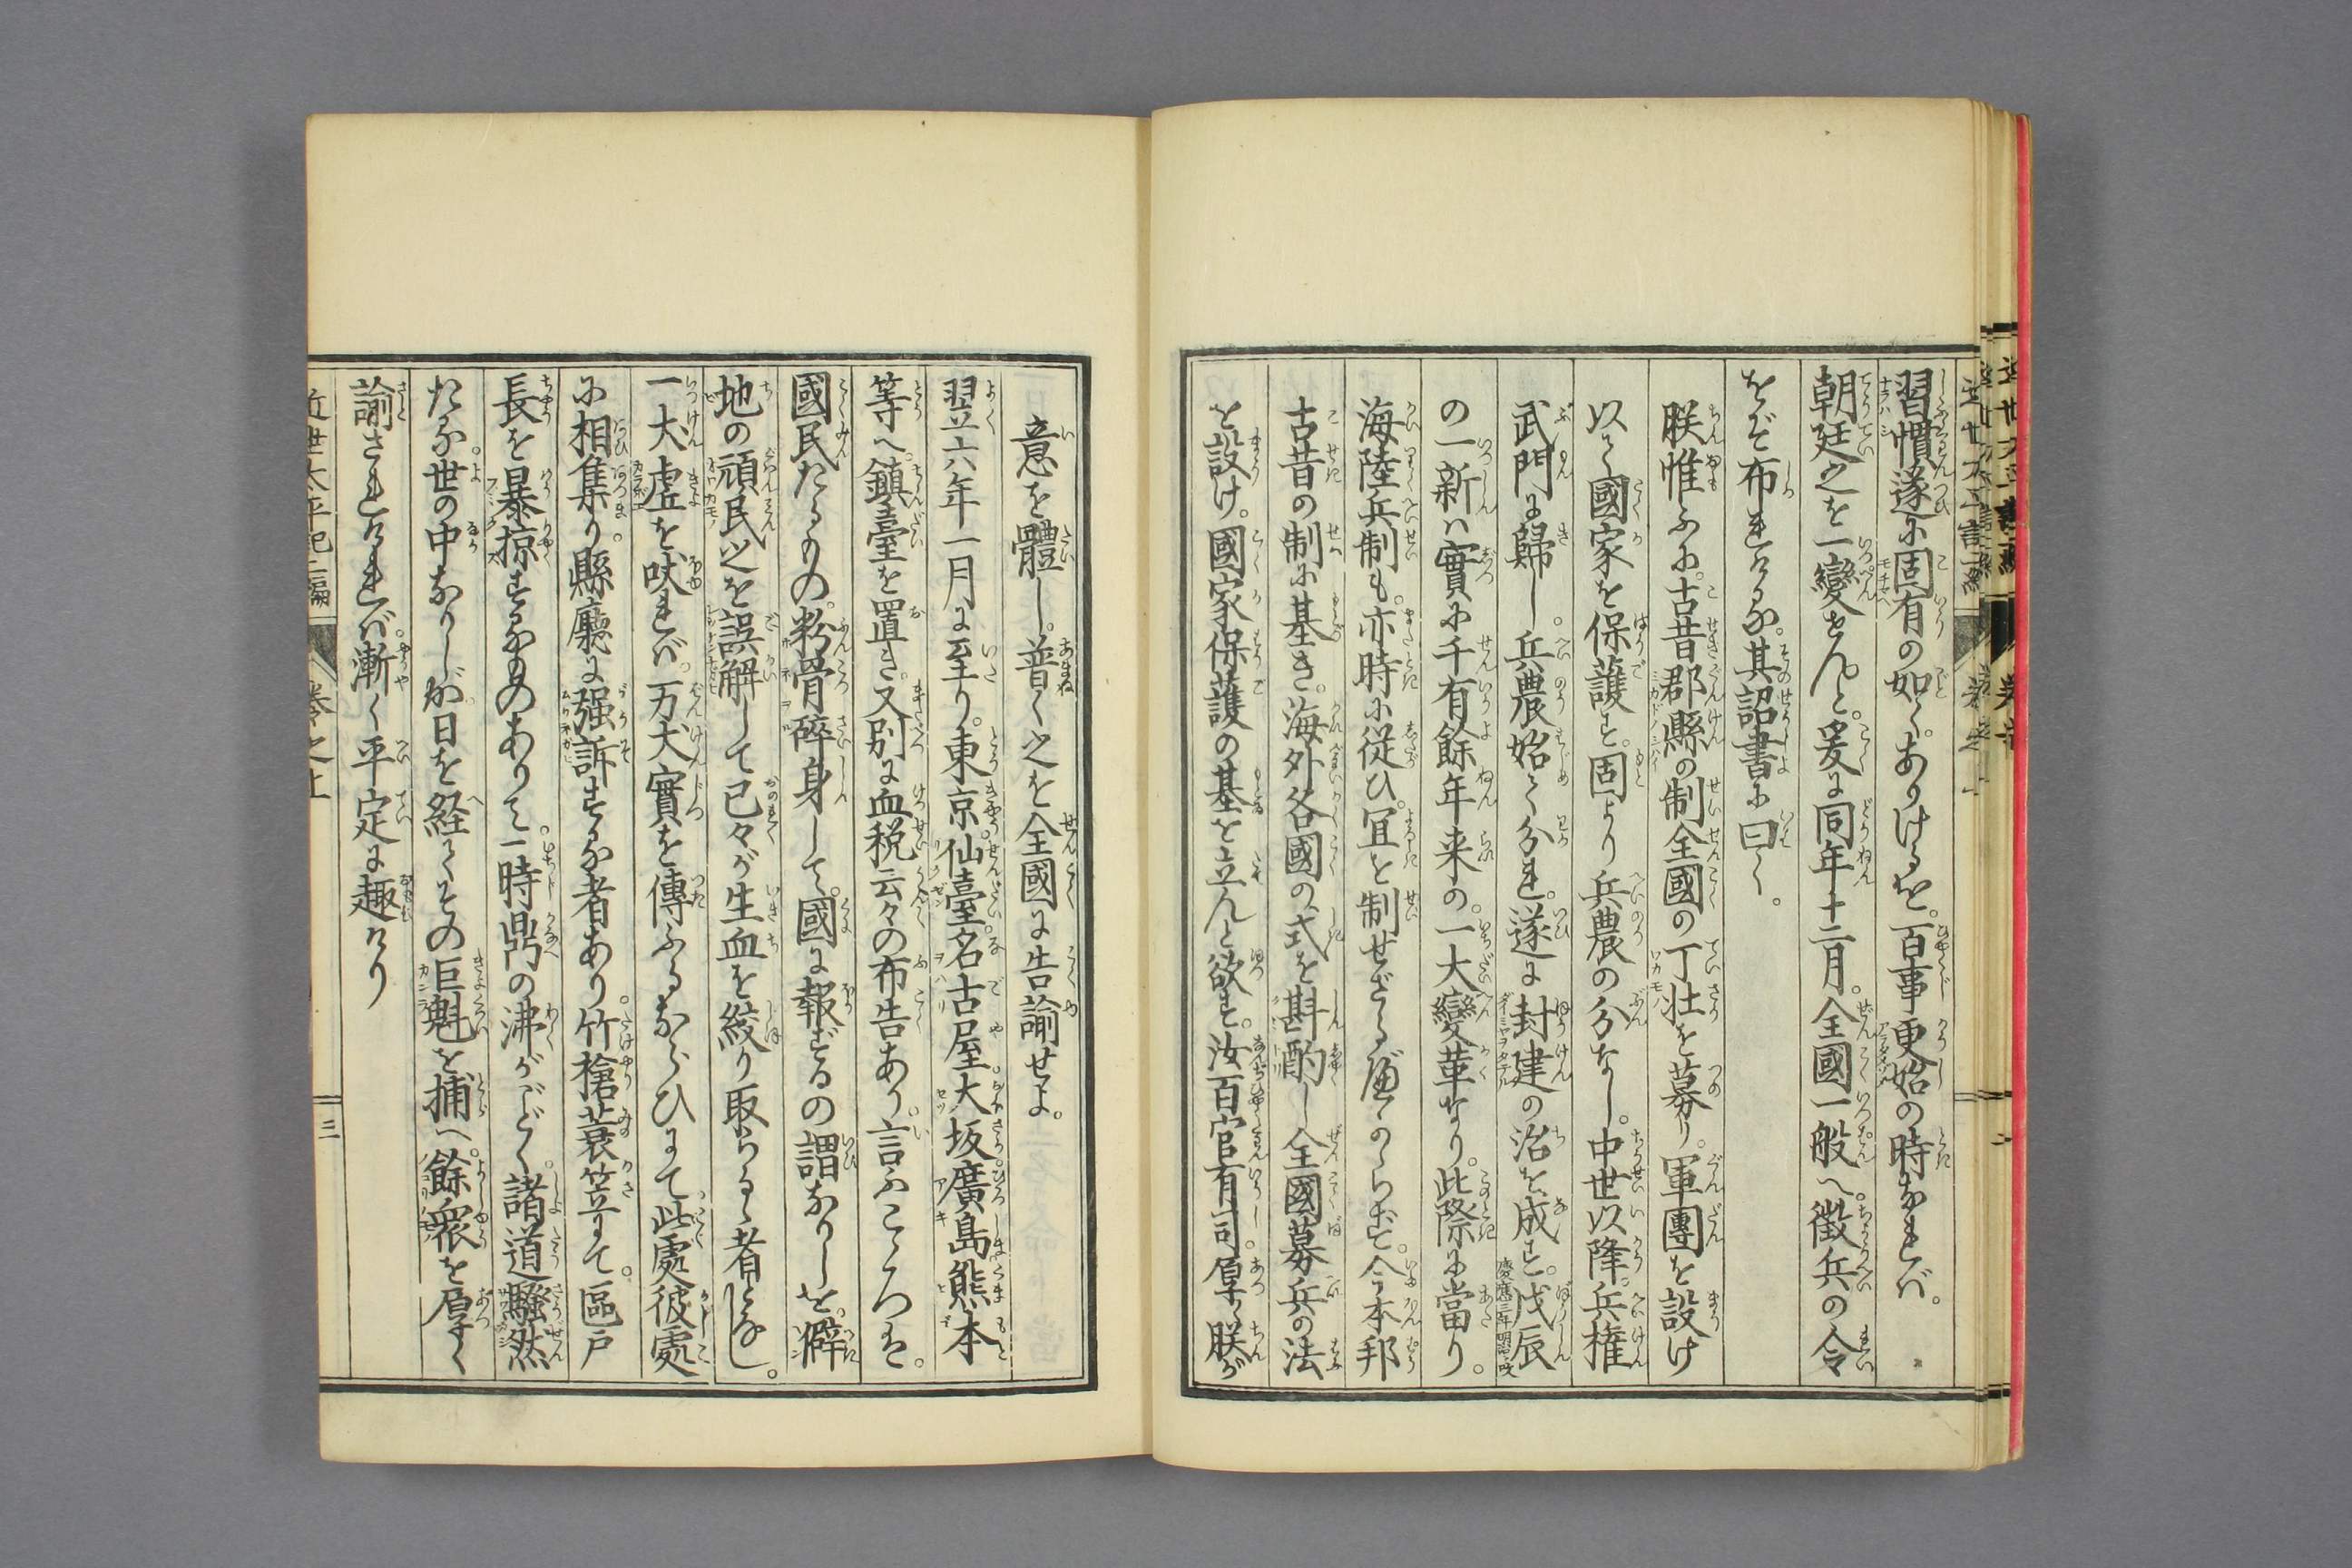 習慣遂に固有の如く。ありけるを。百事更始の時なれバ。
朝廷之を一變せんと。爰に同年十二月。全國一般へ。徴兵の令
をぞ布れける。其詔書に曰く。
朕惟ふに。古昔郡縣の制全國の丁壮を募り。軍團を設け
以て國家を保護す。固より兵農の分なし。中世以降。兵権
武門に歸し。兵農始て分れ。遂に封建の治を成す。戊辰
の一新ハ實に千有餘年来の。一大變革なり。此際に當り。
海陸兵制も。亦時に從ひ。宜を制せざるべからず。今本邦
古昔の制に基き。海外各國の式を斟酌し全國募兵の法
を設け。國家保護の基を立んと欲す。汝百官有司。厚く朕が
意を體し。普く之を全國に告諭せよ。
翌六年一月に至り。東京。仙臺。名古屋。大坂。廣島。熊本
等へ。鎮臺を置き。又別に血税云々の布告あり。言ふこゝろは。
國民たるもの。粉骨碎身して。國に報ずるの謂なりしを。僻
地の頑民之を誤解して己々が生血を絞り取らるゝ者となし。
一犬虚を吠れバ。万犬實を傳ふるならひにて此處彼處
に相集り。縣廳に强訴する者あり。竹槍蓑笠にて。區戸
長を暴掠するものありて。一時鼎の沸がごとく。諸道騒然
たる。世の中なりしが日を経てその巨魁を捕へ。餘衆を厚く
諭されけれバ。漸く平定に趣けり
近世太平記二編 卷之上 三